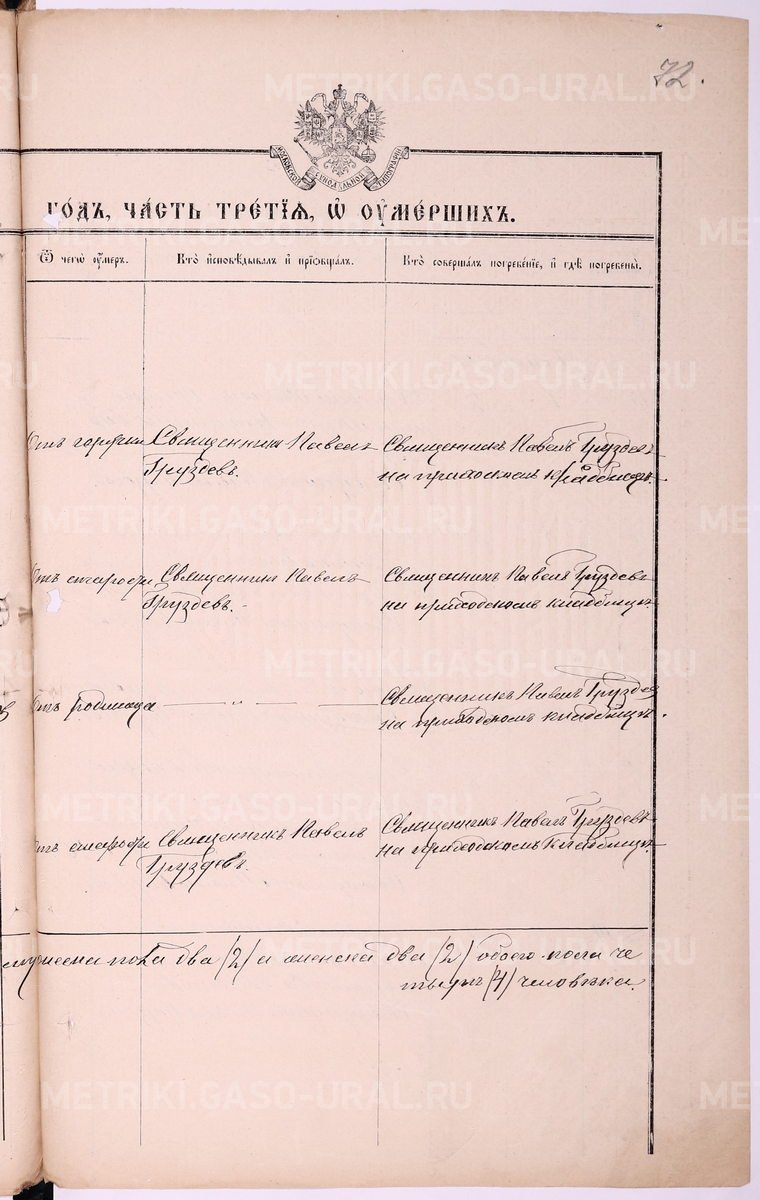 72.
МОСКОВСКОЙ СѴНОДАЛЬНОЙ ТИПОГРАФІИ
годъ, часть третїѧ, ѡ оумершихъ.
Ѿ чегѡ оумеръ. Кто исповѣдывалъ и прїѡбщалъ. Кто совершалъ погребенїе, и гдѣ погребены.
Отъ горячки Священникъ Павелъ Священникъ Павелъ Груздевъ
Груздевъ. на приходскомъ кладбищѣ.
Отъ старости Священникъ Павелъ Священникъ Павелъ Груздевъ
Груздевъ. на приходскомъ кладбищѣ
Отъ родимца — „ — Священникъ Павелъ Груздевъ
на приходскомъ кладбищѣ.
Отъ старости Священникъ Павелъ Священникъ Павелъ Груздевъ
Груздевъ. на приходскомъ кладбищѣ.
мужеска пола два /2/ а женска два /2/ обоего пола че
тыре /4/ человѣка.
METRIKI.GASO-URAL.RU